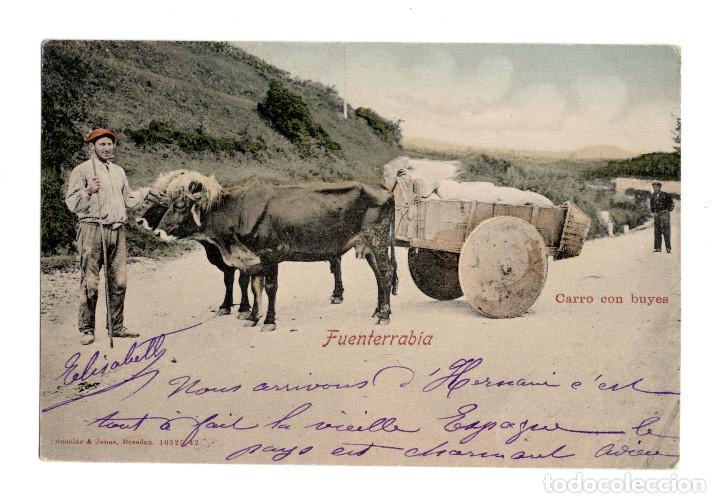 Carro con buyes
Fuenterrabía
Elisabeth
Nous arrivons d'Hernani c'est
tout à fait la vieille Espagne le
pays est charmant adieu
Stengler & Jonas, Dresden. 16525 42
todocoleccion